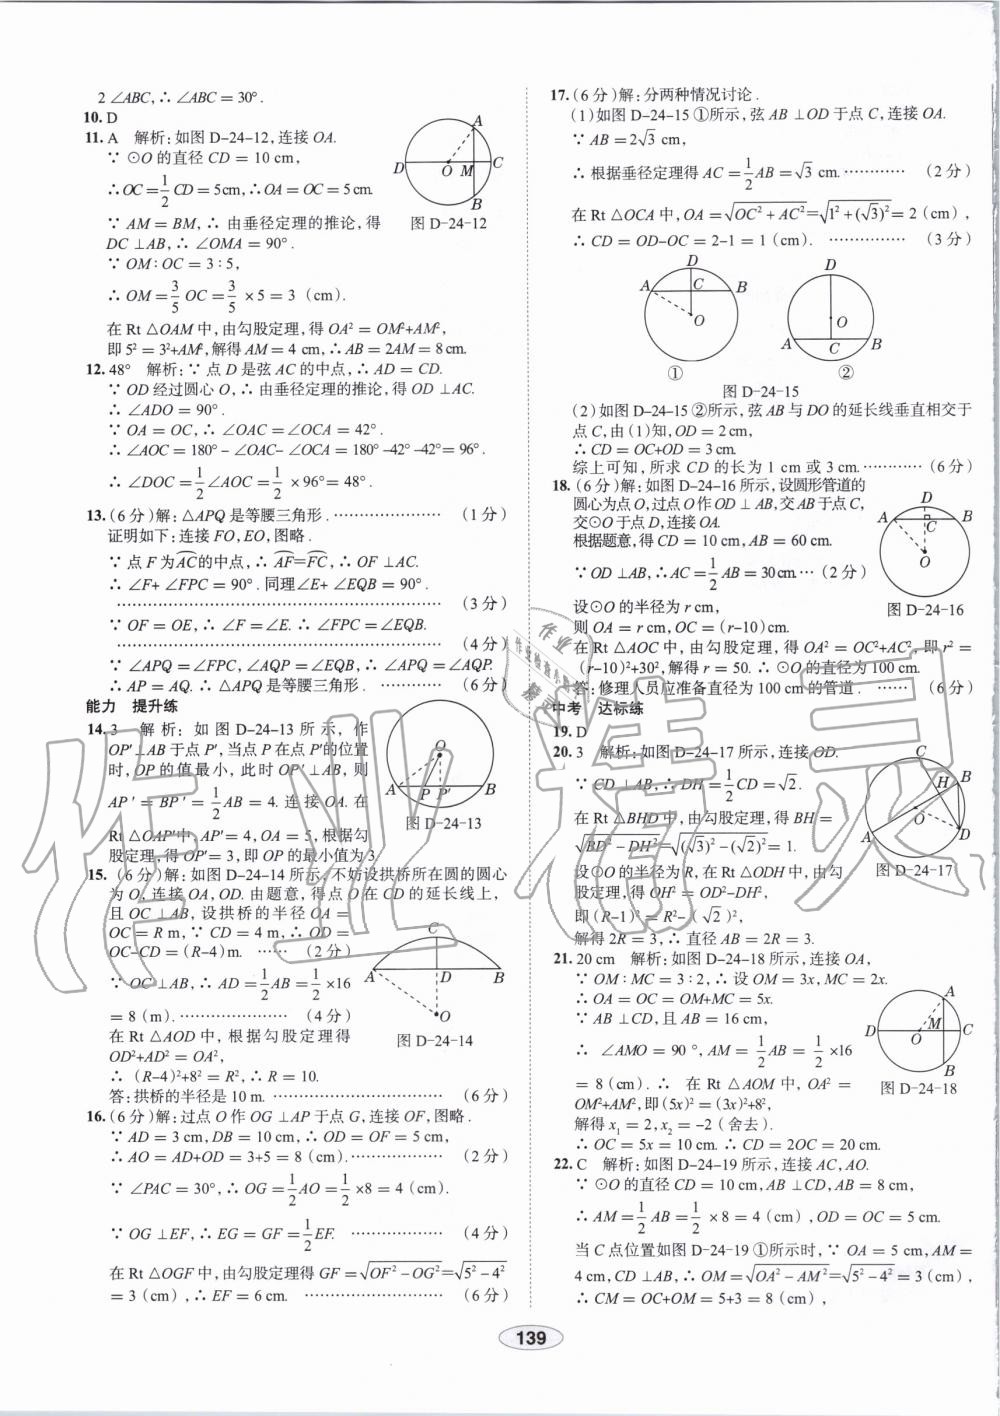 2 ∠ABC,∴ ∠ABC = 30°.
10. D
11. A 解析:如图 D-24-12,连接 OA.
∵ ⊙O 的直径 CD = 10 cm,
∴OC = 1/2 CD = 5cm,∴OA = OC = 5 cm.
∵ AM = BM,∴ 由垂径定理的推论,得
DC ⊥AB,∴ ∠OMA = 90°.
∵ OM∶OC = 3∶5,
∴ OM = 3/5 OC = 3/5 × 5 = 3 (cm).
在 Rt △OAM 中,由勾股定理,得 OA² = OM²+AM²,
即 5² = 3²+AM²,解得 AM = 4 cm,∴ AB = 2AM = 8 cm.
D O M C A B
图 D-24-12
12. 48° 解析:∵ 点 D 是弦 AC 的中点,∴ AD = CD.
∵ OD 经过圆心 O,∴ 由垂径定理的推论,得 OD ⊥AC.
∴ ∠ADO = 90°.
∵ OA = OC,∴ ∠OAC = ∠OCA = 42°.
∴ ∠AOC = 180° - ∠OAC- ∠OCA = 180° -42° -42° = 96°.
∴ ∠DOC = 1/2 ∠AOC = 1/2 × 96° = 48°.
13. (6 分)解:△APQ 是等腰三角形. ………………… (1 分)
证明如下:连接 FO,EO,图略.
∵ 点 F 为AC的中点,∴ AF=FC,∴ OF ⊥AC.
∴ ∠F+ ∠FPC = 90°. 同理∠E+ ∠EQB = 90°.
………………………………………… (3 分)
∵ OF = OE,∴ ∠F = ∠E. ∴ ∠FPC = ∠EQB.
………………………………………… (4 分)
∵ ∠APQ = ∠FPC,∠AQP = ∠EQB,∴ ∠APQ = ∠AQP.
∴ AP = AQ. ∴ △APQ 是等腰三角形. ………… (6 分)
能力 提升练
14. 3 解析:如图 D-24-13 所示,作
OP'⊥AB 于点 P',当点 P 在点 P'的位置
时,OP 的值最小,此时 OP'⊥AB,则
AP' = BP' = 1/2 AB = 4. 连接 OA. 在
Rt △OAP'中,AP' = 4,OA = 5,根据勾
股定理,得 OP' = 3,即 OP 的最小值为 3.
O A P P' B
图 D-24-13
15. (6 分)解:如图 D-24-14 所示,不妨设拱桥所在圆的圆心
为 O,连接 OA,OD. 由题意,得点 O 在 CD 的延长线上,
且 OC ⊥AB,设拱桥的半径 OA =
OC = R m,∵ CD = 4 m,∴ OD =
OC-CD = (R-4)m. …… (2 分)
∵ OC ⊥AB,∴ AD = 1/2 AB = 1/2 ×16
= 8 (m). ………………… (4 分)
在 Rt △AOD 中,根据勾股定理得
OD²+AD² = OA²,
∴ (R-4)²+8² = R²,∴ R = 10.
答:拱桥的半径是 10 m. ………………………… (6 分)
C A D B O
图 D-24-14
16. (6 分)解:过点 O 作 OG ⊥AP 于点 G,连接 OF,图略.
∵ AD = 3 cm,DB = 10 cm,∴ OD = OF = 5 cm,
∴ AO = AD+OD = 3+5 = 8 (cm). …………… (2 分)
∵ ∠PAC = 30°,∴ OG = 1/2 AO = 1/2 ×8 = 4 (cm).
∵ OG ⊥EF,∴ EG = GF = 1/2 EF. …………… (4 分)
在 Rt △OGF 中,由勾股定理得 GF = √(OF² - OG²) = √(5² - 4²)
= 3 (cm),∴ EF = 6 cm. ………………… (6 分)
17. (6 分)解:分两种情况讨论.
(1)如图 D-24-15 ①所示,弦 AB ⊥OD 于点 C,连接 OA.
∵ AB = 2√3 cm,
∴ 根据垂径定理得 AC = 1/2 AB = √3 cm. ………… (2 分)
在 Rt △OCA 中,OA = √(OC² + AC²) = √(1² + (√3)²) = 2 (cm),
∴ CD = OD-OC = 2-1 = 1 (cm). …………… (3 分)
D A C B O ①
D O A C B ②
图 D-24-15
(2)如图 D-24-15 ②所示,弦 AB 与 DO 的延长线垂直相交于
点 C,由(1)知,OD = 2 cm,
∴ CD = OC+OD = 3 cm.
综上可知,所求 CD 的长为 1 cm 或 3 cm. ………… (6 分)
18. (6 分)解:如图 D-24-16 所示,设圆形管道的
圆心为点 O,过点 O 作 OD ⊥ AB,交 AB 于点 C,
交⊙O 于点 D,连接 OA.
根据题意,得 CD = 10 cm,AB = 60 cm.
∵ OD ⊥AB,∴AC = 1/2 AB = 30 cm. … (2 分)
设⊙O 的半径为 r cm,
则 OA = r cm,OC = (r-10)cm.
D A C B O
图 D-24-16
在 Rt △AOC 中,由勾股定理,得 OA² = OC²+AC²,即 r² =
(r-10)²+30²,解得 r = 50. ∴ ⊙O 的直径为 100 cm.
答:修理人员应准备直径为 100 cm 的管道. …… (6 分)
中考 达标练
19. D
20. 3 解析:如图 D-24-17 所示,连接 OD.
∵ CD ⊥AB,∴ DH = 1/2 CD = √2.
在 Rt △BHD 中,由勾股定理,得 BH =
√(BD² - DH²) = √((√3)² - (√2)²) = 1.
设⊙O 的半径为 R,在 Rt △ODH 中,由勾
股定理,得 OH² = OD²-DH²,
即 (R-1)² = R²- (√2)²,
解得 2R = 3,∴ 直径 AB = 2R = 3.
C H B O A D
图 D-24-17
21. 20 cm 解析:如图 D-24-18 所示,连接 OA,
∵ OM∶MC = 3∶2,∴ 设 OM = 3x,MC = 2x.
∴ OA = OC = OM+MC = 5x.
∵ AB ⊥CD,且 AB = 16 cm,
∴ ∠AMO = 90 °,AM = 1/2 AB = 1/2 ×16
= 8 (cm). ∴ 在 Rt △AOM 中,OA² =
OM²+AM²,即 (5x)² = (3x)²+8²,
解得 x₁ = 2,x₂ = -2 (舍去).
∴ OC = 5x = 10 cm. ∴ CD = 2OC = 20 cm.
A D M C O B
图 D-24-18
22. C 解析:如图 D-24-19 所示,连接 AC,AO.
∵ ⊙O 的直径 CD = 10 cm,AB ⊥CD,AB = 8 cm,
∴ AM = 1/2 AB = 1/2 × 8 = 4 (cm),OD = OC = 5 cm.
当 C 点位置如图 D-24-19 ①所示时,∵ OA = 5 cm,AM =
4 cm,CD ⊥AB,∴ OM = √(OA² - AM²) = √(5² - 4²) = 3 (cm),
∴ CM = OC+OM = 5+3 = 8 (cm),
139
作业精灵